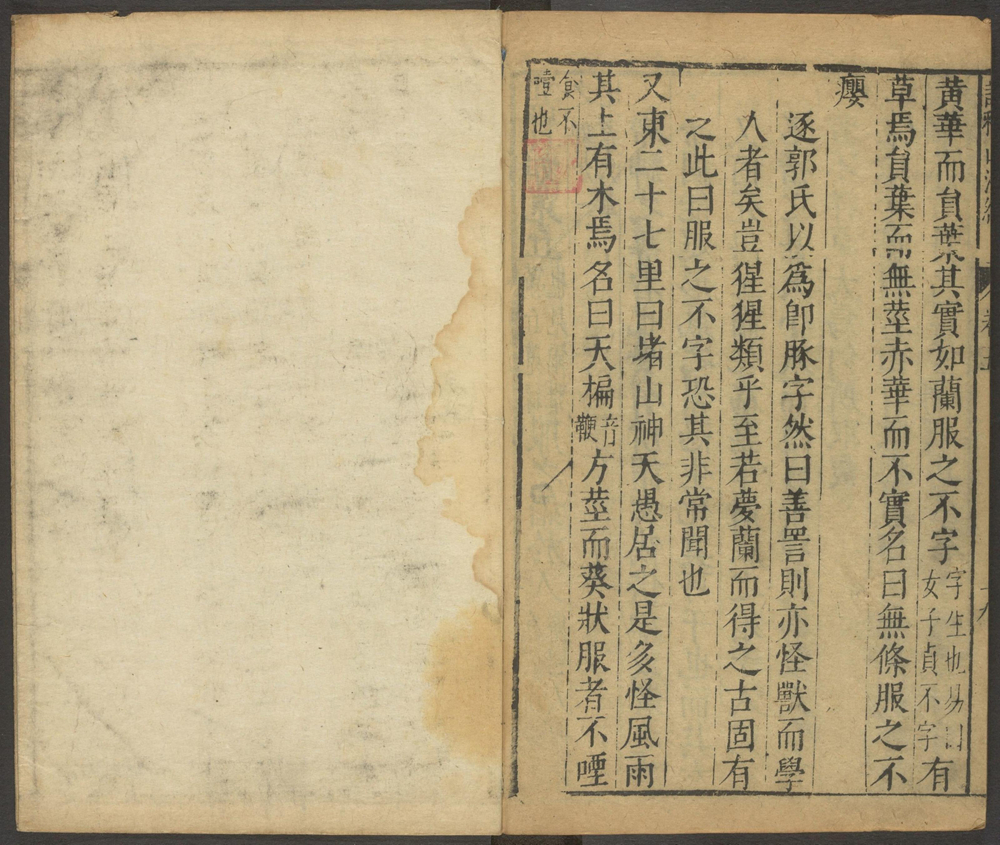 黃華而負葉其實如蘭服之不字字生也易曰女子貞不字有
草焉負葉而無莖赤華而不實名曰無條服之不
癭
逐郭氏以為即豚字然曰善詈則亦怪獸而學
人者矣豈猩猩類乎至若夢蘭而得之古固有
之此曰服之不字恐其非常聞也
又東二十七里曰堵山神天愚居之是多怪風雨
其上有木焉名曰天楄音鞭方莖而葵狀服者不㖶
食不
噎也